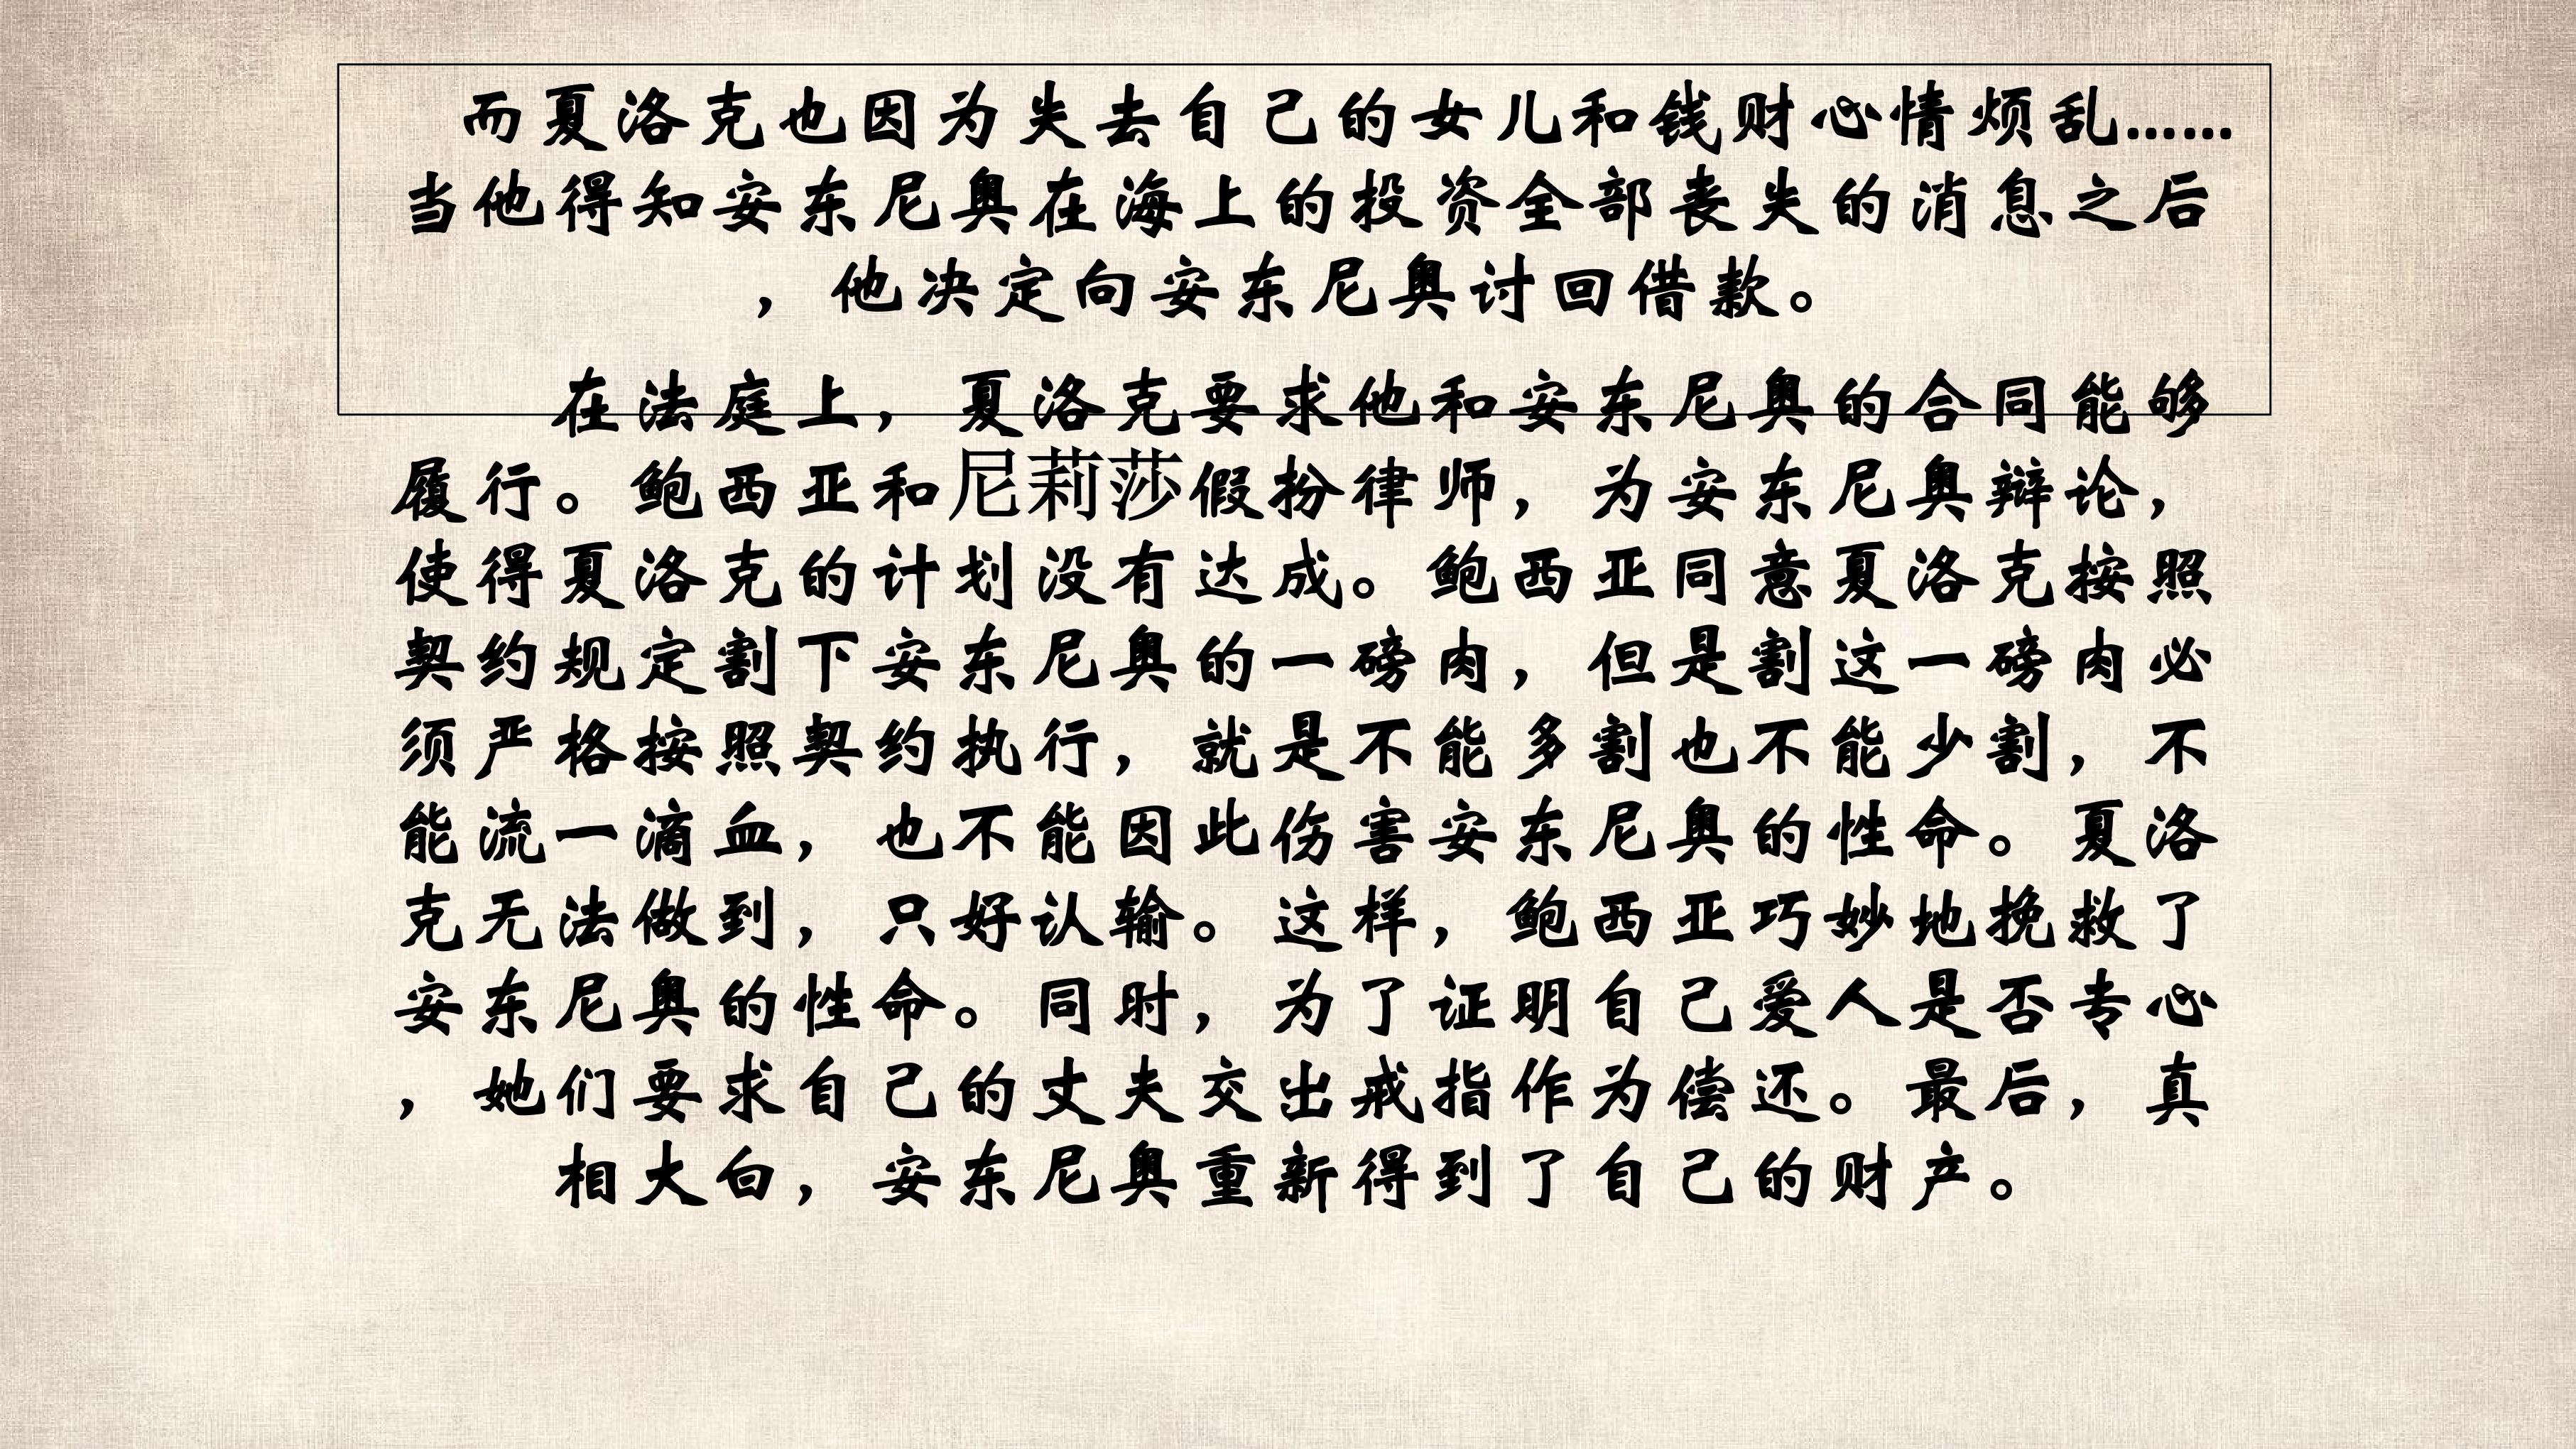 而夏洛克也因为失去自己的女儿和钱财心情烦乱……
当他得知安东尼奥在海上的投资全部丧失的消息之后
，他决定向安东尼奥讨回借款。
在法庭上，夏洛克要求他和安东尼奥的合同能够
履行。鲍西亚和尼莉莎假扮律师，为安东尼奥辩论，
使得夏洛克的计划没有达成。鲍西亚同意夏洛克按照
契约规定割下安东尼奥的一磅肉，但是割这一磅肉必
须严格按照契约执行，就是不能多割也不能少割，不
能流一滴血，也不能因此伤害安东尼奥的性命。夏洛
克无法做到，只好认输。这样，鲍西亚巧妙地挽救了
安东尼奥的性命。同时，为了证明自己爱人是否专心
，她们要求自己的丈夫交出戒指作为偿还。最后，真
相大白，安东尼奥重新得到了自己的财产。